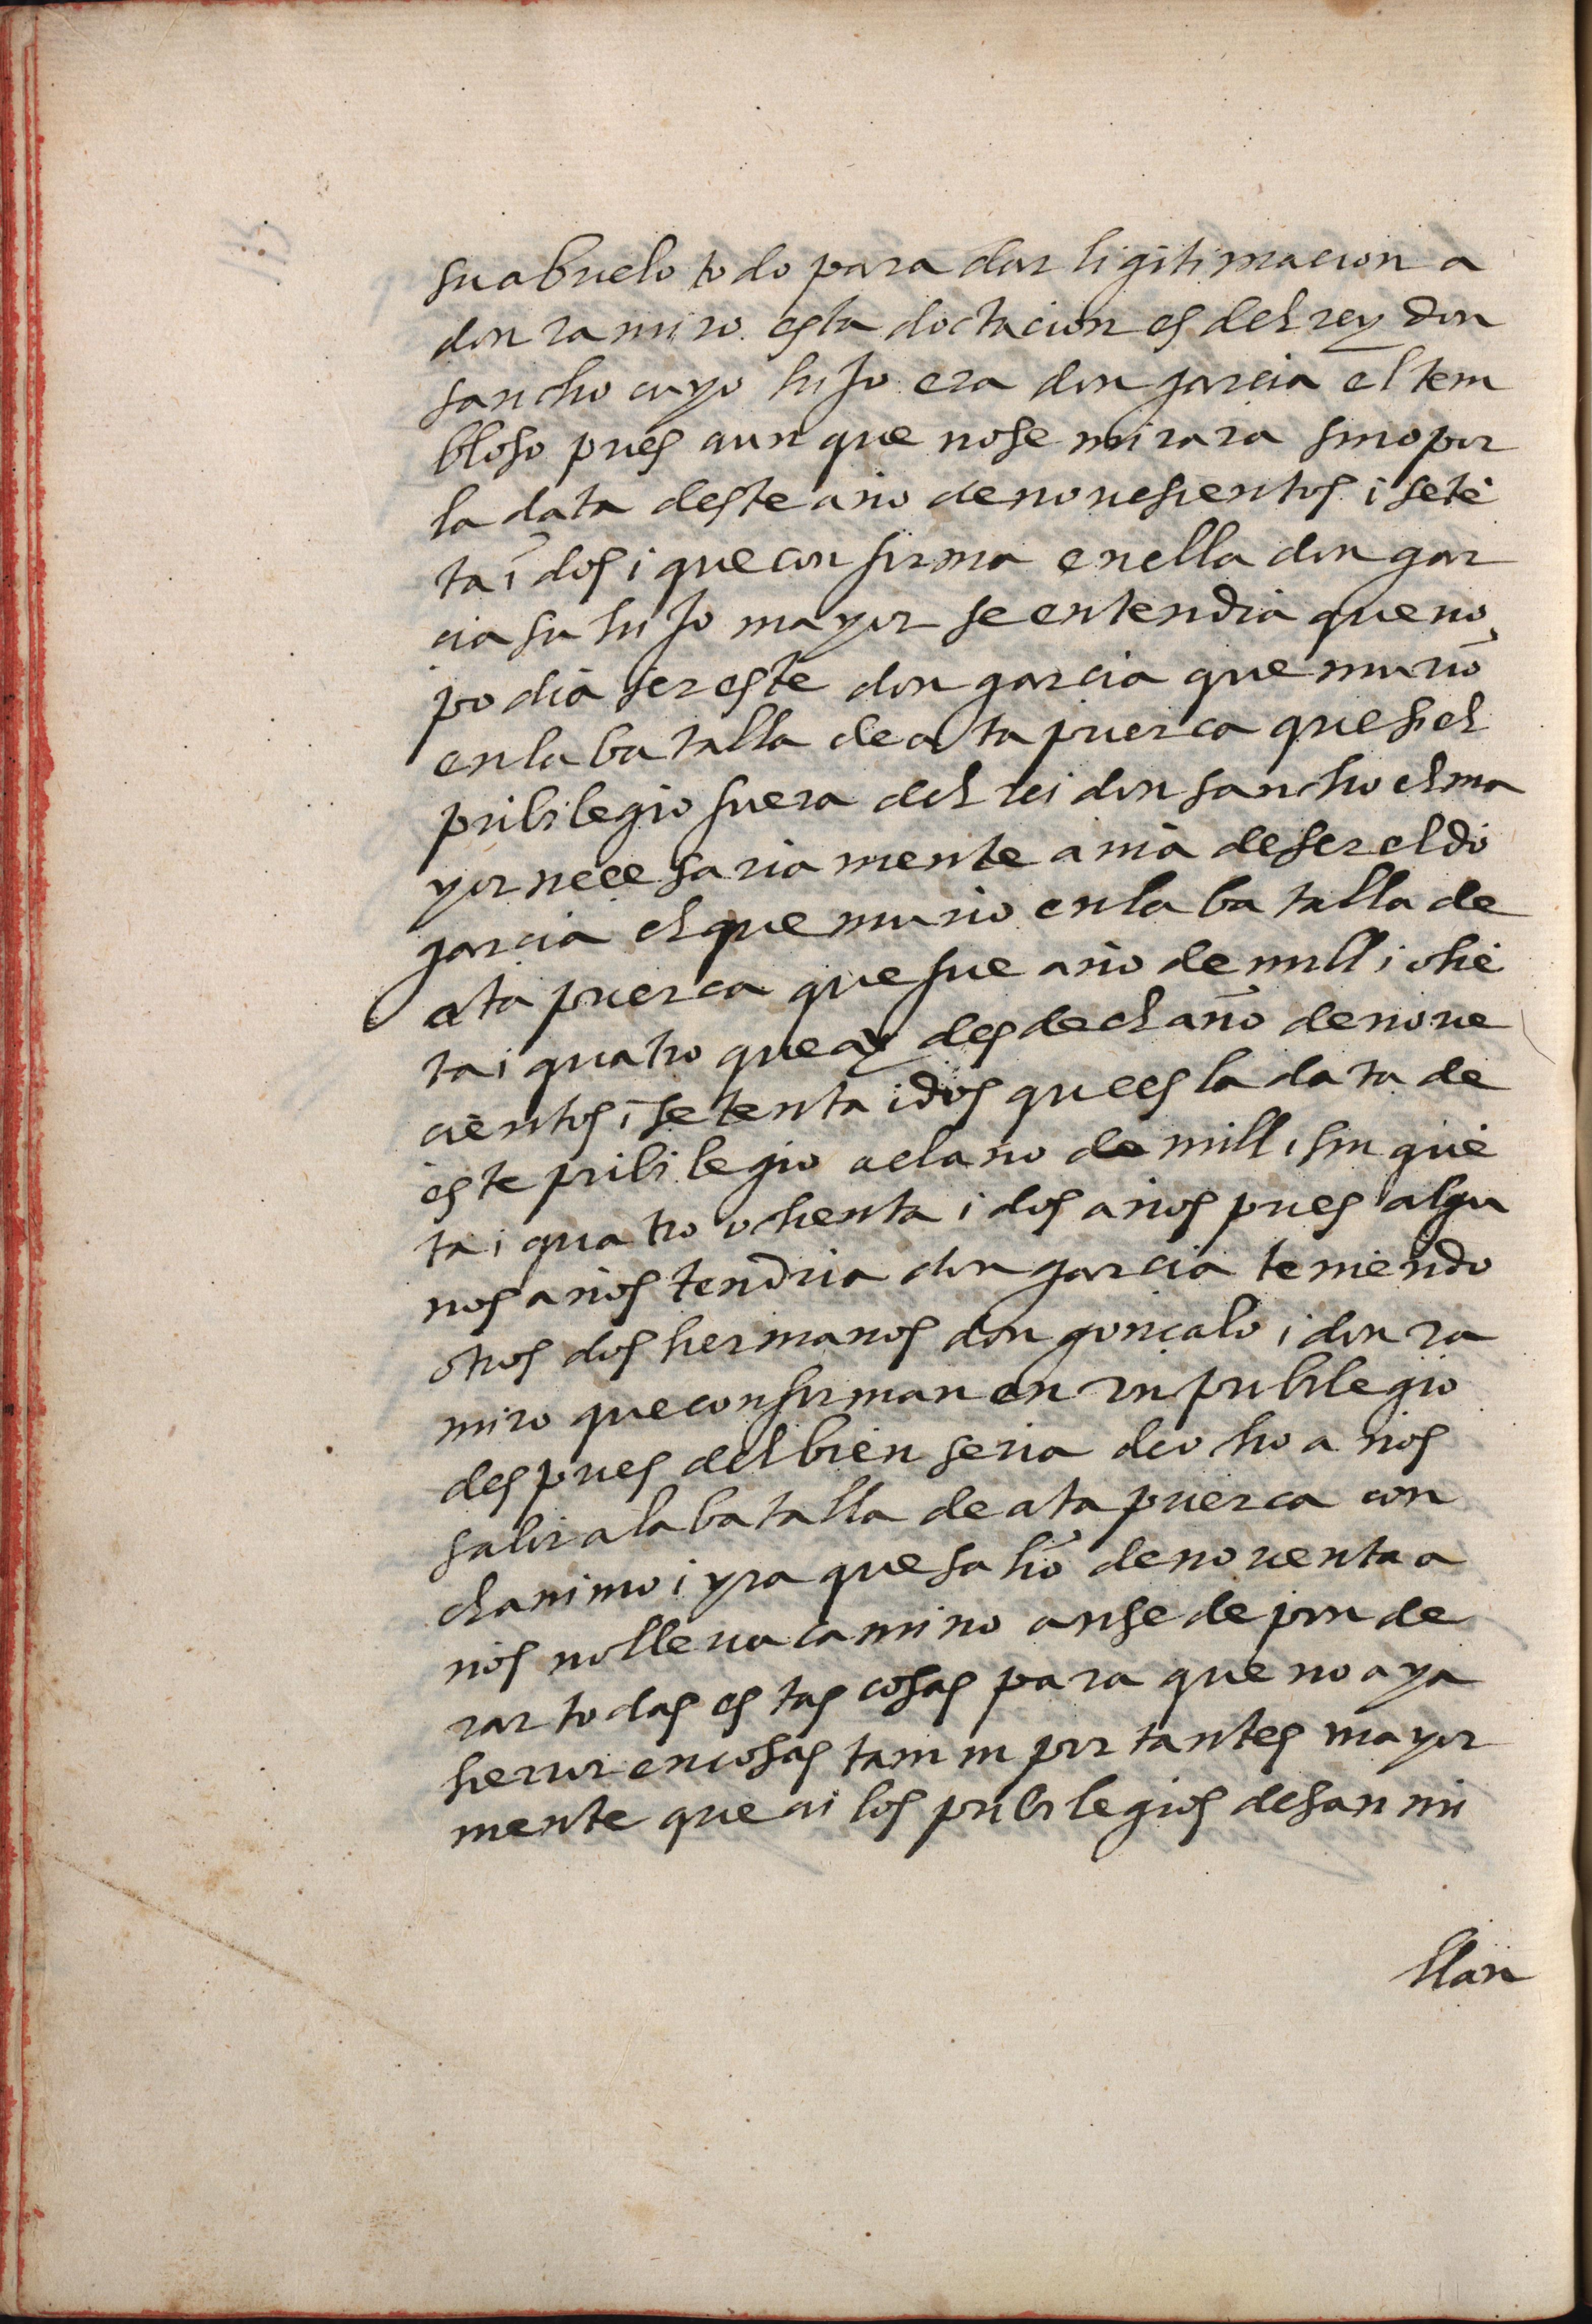 su abuelo todo para dar ligitimacion a
don ramiro. esta doctacion es del rey don
sancho cuyo hijo era don garcia el tem
bloso pues aunque no se mirara sino por
la data deste año de novescientos i setē
ta i dos i que confirma en ella don gar
cia su hijo mayor se entendia que no
podia ser este don garcia que murió
en la batalla de atapuerca que si el
pribilegio fuera del rei don sancho el ma
yor necesariamente avia de ser el dō
garcia el que murio en la batalla de
atapuerca que fue año de mill i ohē
ta i quatro que ay desde el año de nove
cientos i setenta i dos que es la data de
este pribilegio a el año de mill i sinquē
ta i quatro ohenta i dos años pues algu
nos años tendria don garcia teniendo
otros dos hermanos don gonçalo i don ra
miro que confirman en un pribilegio
despues del bien seria de ocho años
salir a la batalla de atapuerca con
el animo i yra que salió de noventa a
ños no lleva camino anse de ponde
rar todas estas cosas para que no aya
herror en cosas tam importantes mayor
mente que ai los pribilegios de san mi
llan